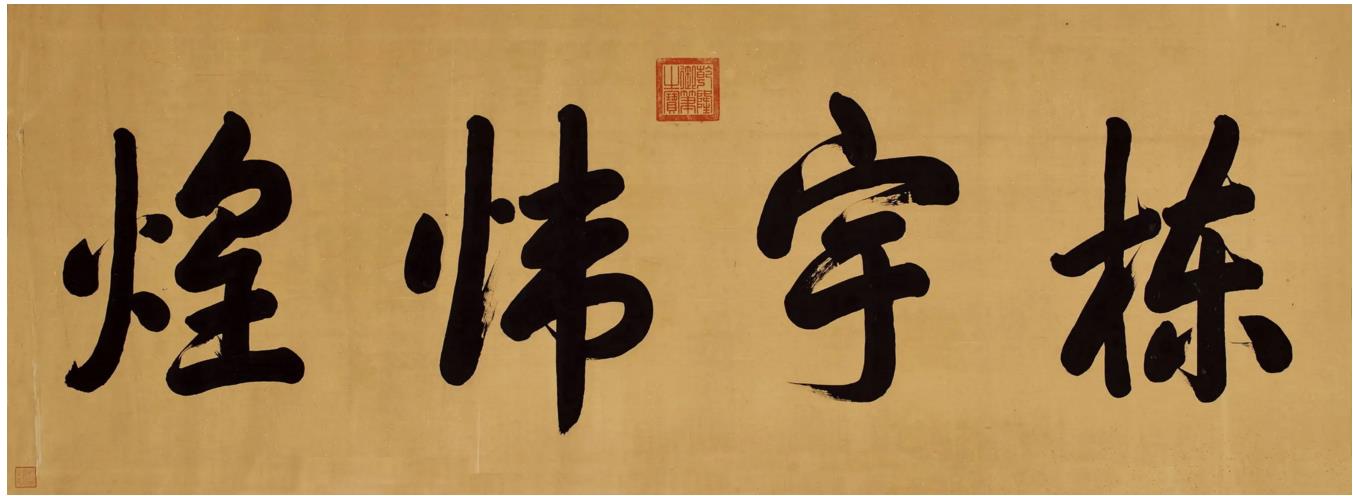 乾隆御筆之寶
棟宇煒煌